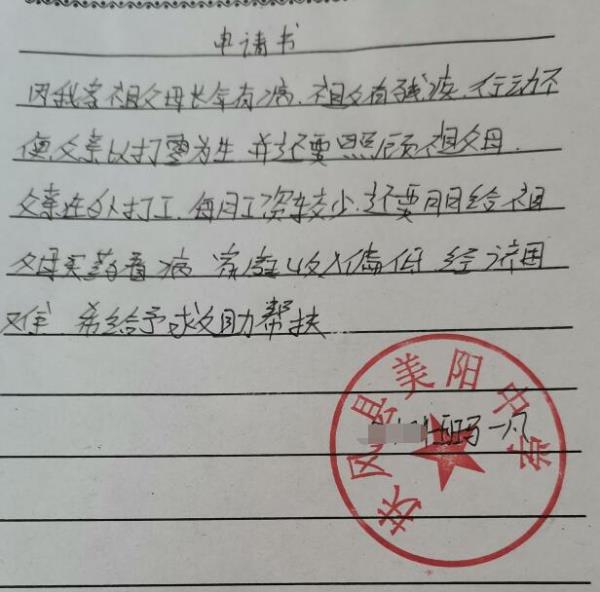 申请书
因我家祖父母长年有病、祖父有残疾、行动不
便,父亲以打零为生 并还要照顾祖父母.
父亲在外打工、每月工资较少、还要月月给祖
父母买药看病 家庭收入偏低 经济困
难 希给予救助帮扶
班马一凡
扶风县美阳中学